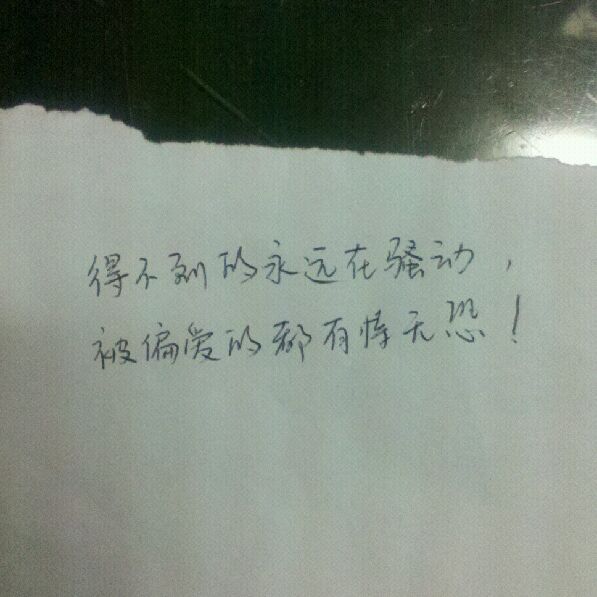 得不到的永远在骚动，
被偏爱的都有恃无恐！